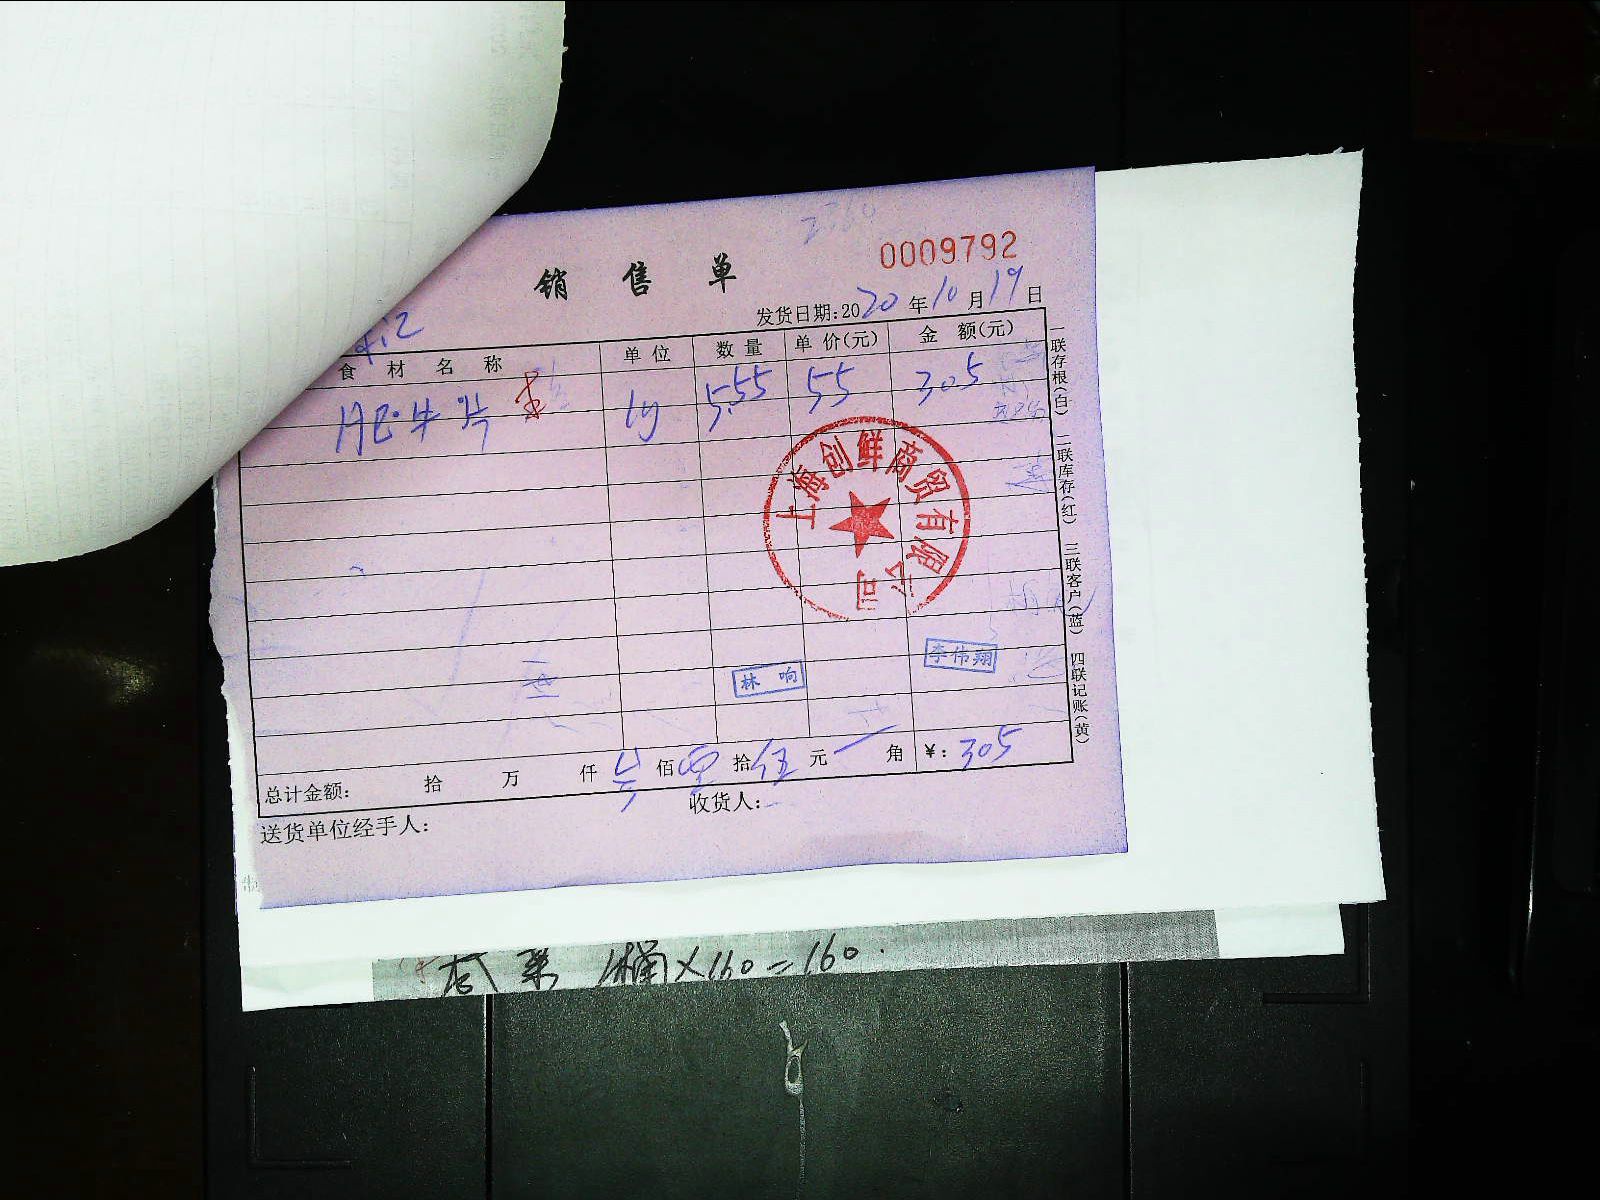 0009792
销售单
发货日期:2020年10月19日
食材名称 单位 数量 单价(元) 金额(元)
肥牛片 kg 5.55 55 305
上海创鲜商贸有限公司
李伟翔
林响
总计金额: 拾 万 仟 佰 拾伍元 角 ¥:305
送货单位经手人: 收货人:
一联存根(白) 二联库存(红) 三联客户(蓝) 四联记账(黄)
1桶×160=160